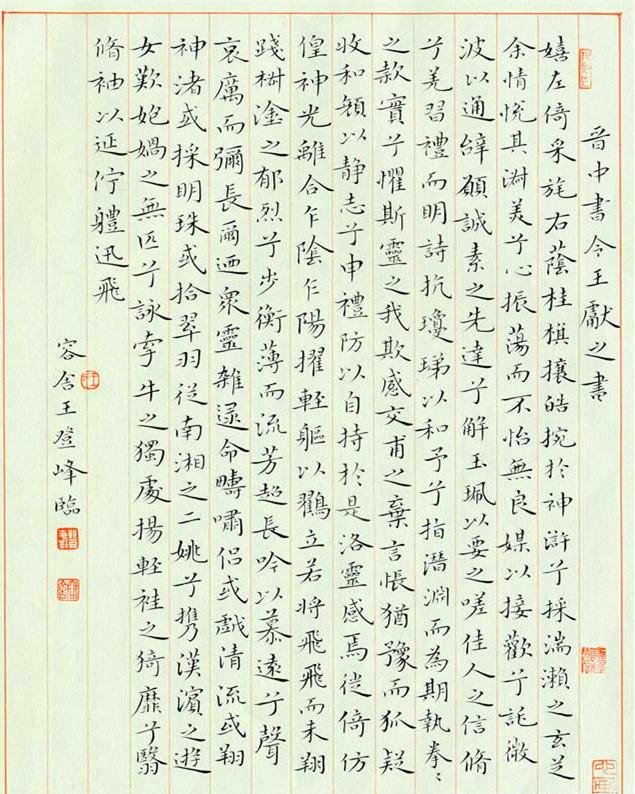 晉中書令王獻之書
嬉左倚采旄右蔭桂棋攘皓捥於神滸兮採湍瀨之玄芝
余情悅其淑美兮心振蕩而不怡無良媒以接歡兮託微
波以通辭願誠素之先達兮解玉珮以要之嗟佳人之信脩
兮羌習禮而明詩抗瓊珶以和予兮指潛淵而為期執拳〻
之款實兮懼斯靈之我欺感交甫之棄言悵猶豫而狐疑
收和顏以静志兮申禮防以自持於是洛靈感焉徙倚仿
偟神光離合乍陰乍陽擢輕軀以鶴立若將飛飛而未翔
踐椒塗之郁烈兮步衡薄而流芳超長吟以慕遠兮聲
哀厲而彌長爾迺衆靈雜遝命疇嘯侶或戲清流或翔
神渚或採明珠或拾翠羽從南湘之二姚兮攜漢濱之遊
女歎媧之無匹兮詠牽牛之獨處揚輕袿之猗靡兮翳
脩袖以延佇軆迅飛
容舍王登峰臨